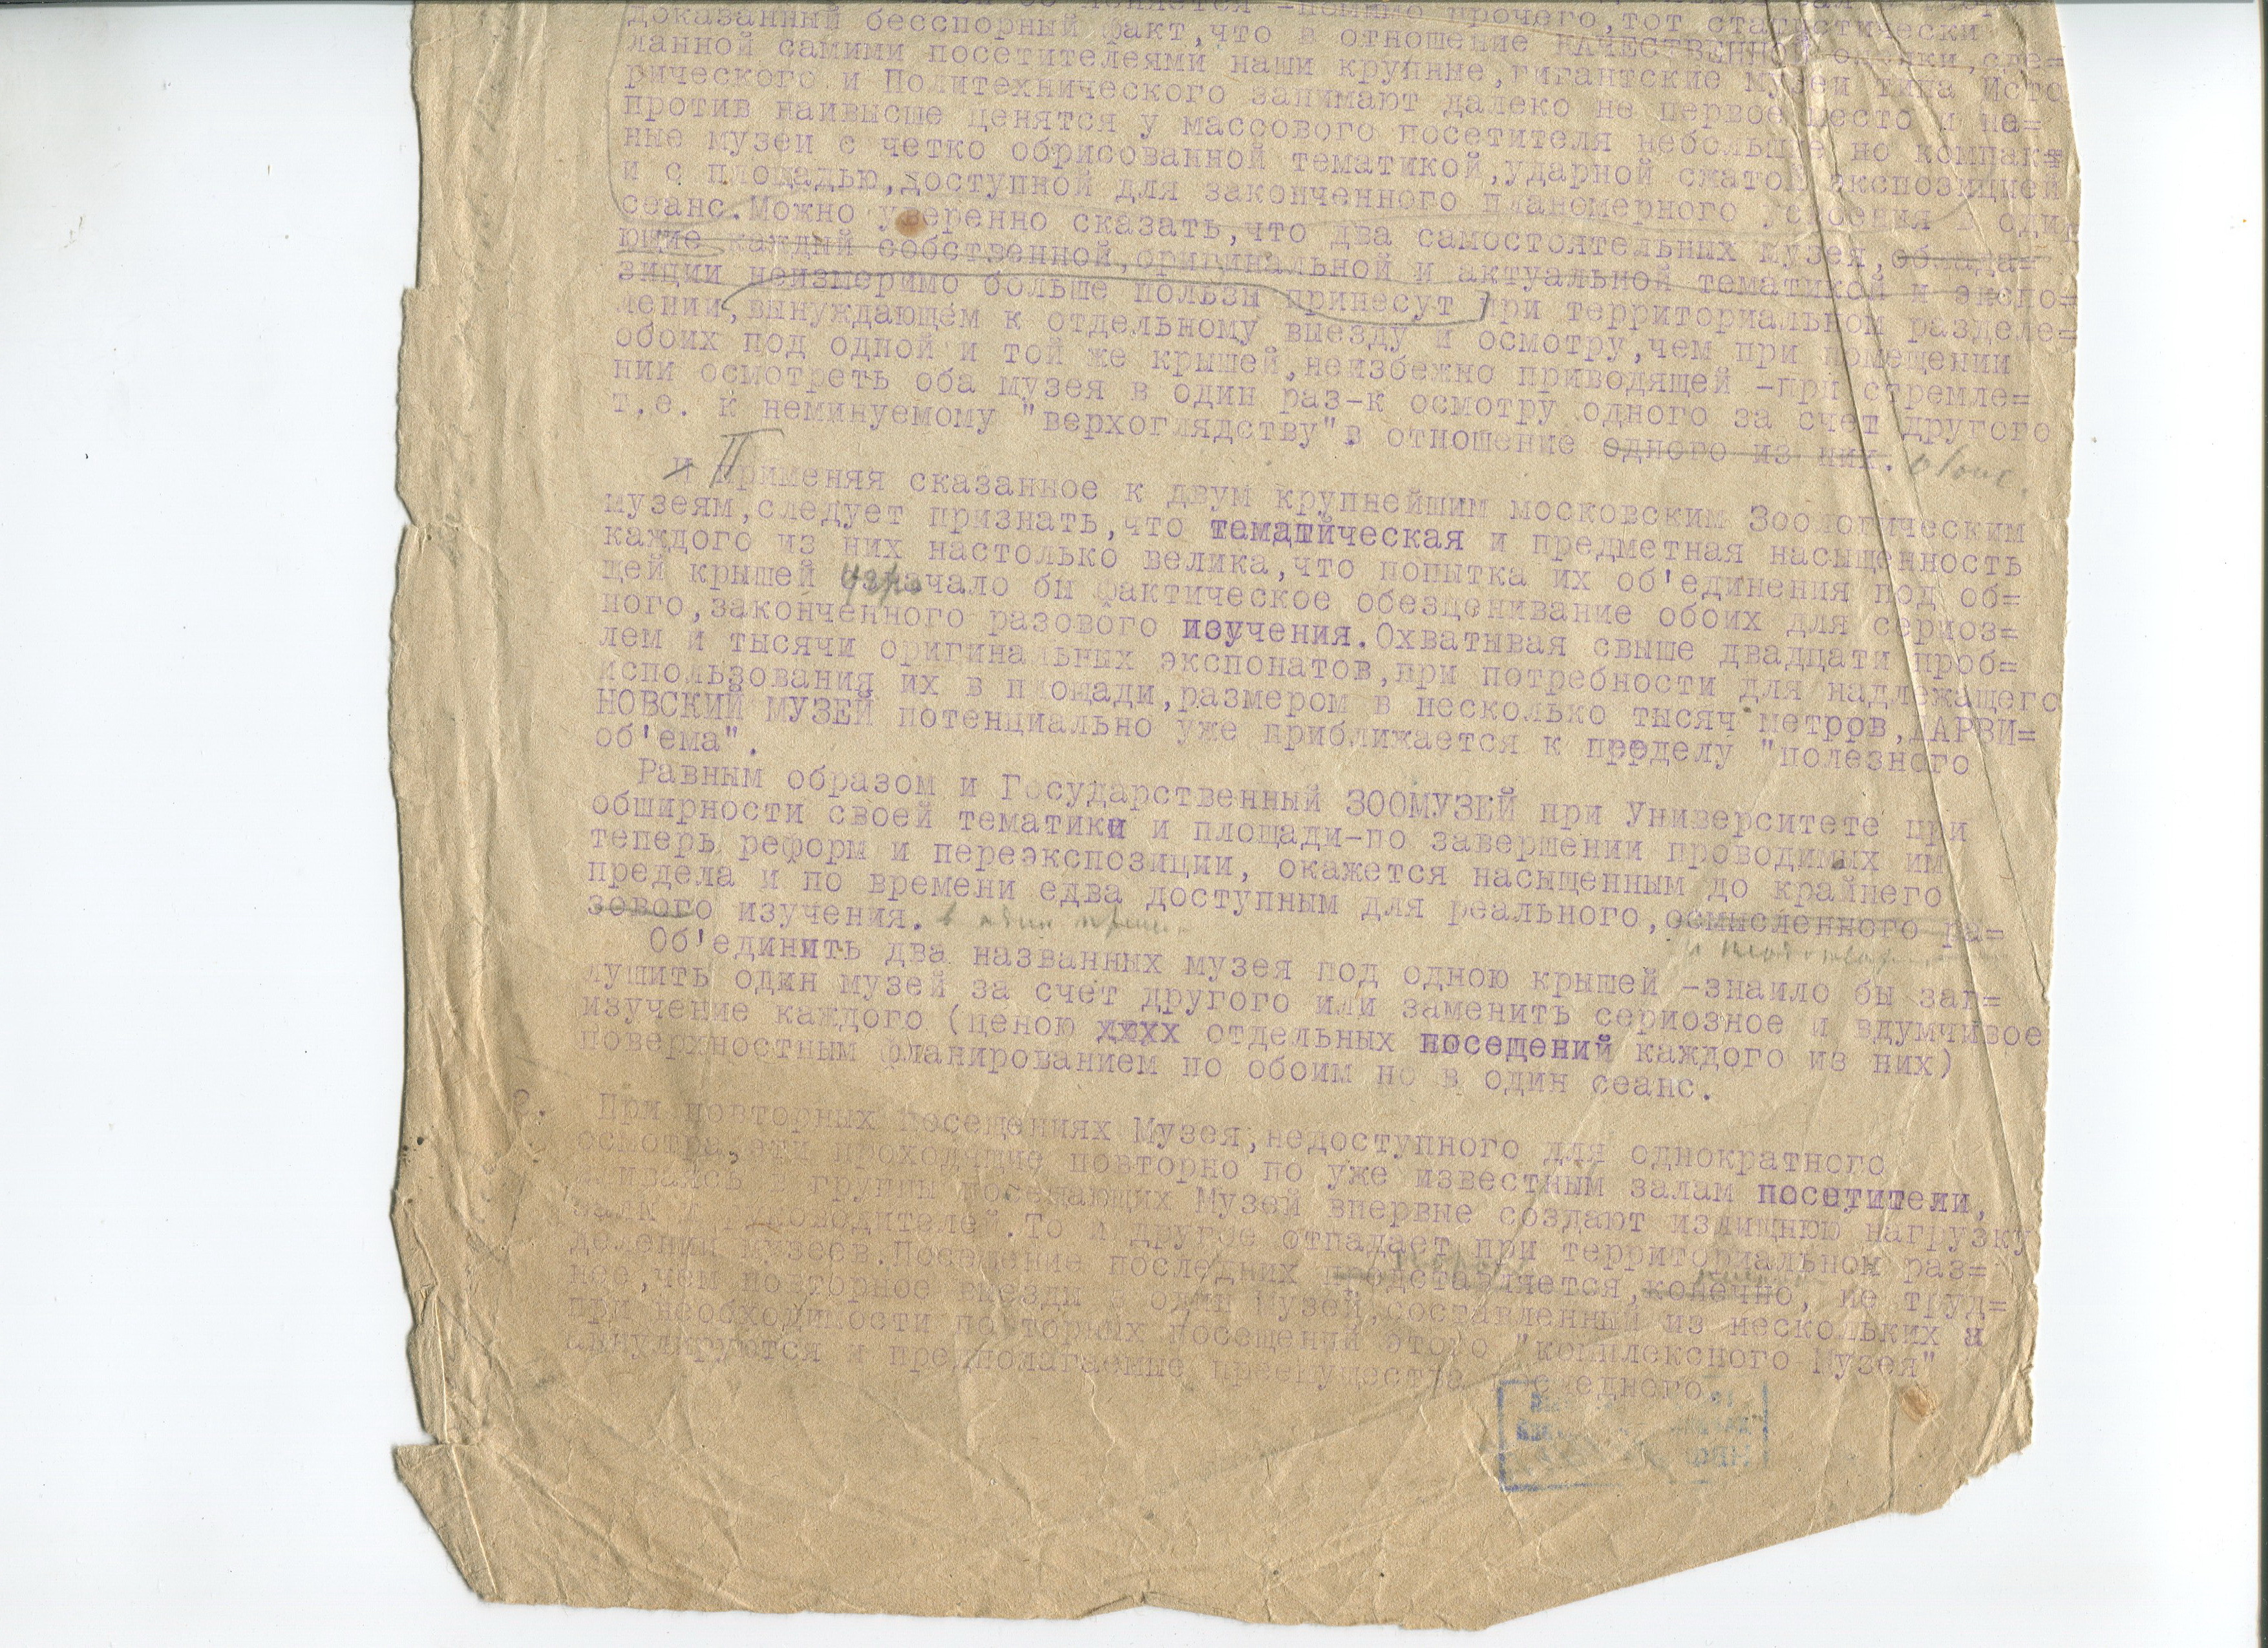 прочего,тот статистически
доказанный бесспорный факт,что в отношение КАЧЕСТВЕННОЙ оценки,сде=
ланной самими посетителеями наши крупные,гигантские музеи типа Исто
рического и Политехнического занимают далеко не первое место и на=
против наивысше ценятся у массового посетителя небольшие но компакт=
ные музеи с четко обрисованной тематикой,ударной сжатой экспозицией
и с площадью,доступной для законченного планомерного усвоения в один
сеанс.Можно уверенно сказать,что два самостоятельных музея,облада=
ющие каждый собственной,оригинальной и актуальной тематикой и экспо=
зиции неизмеримо больше пользы принесут при территориальном разделе=
лении,вынуждающем к отдельному выезду и осмотру,чем при помещении
обоих под одной и той же крышей,неизбежно приводящей -при стремле=
нии осмотреть оба музея в один раз-к осмотру одного за счет другого
т.е. к неминуемому "верхоглядству"в отношение одного из них.
и Применяя сказанное к двум крупнейшим московским Зоологическим
музеям,следует признать,что тематйческая и предметная насыщенность
каждого из них настолько велика,что попытка их об'единения под об=
щей крышей означало бы фактическое обезценивание обоих для сериоз=
ного,законченного разового изучения.Охватывая свыше двадцати проб=
лем и тысячи оригинальных экспонатов,при потребности для надлежащего
использования их в площади,размером в несколько тысяч метров,ДАРВИ=
НОВСКИЙ МУЗЕЙ потенциально уже приближается к пределу "полезного
об'ема".
Равным образом и Государственный ЗООМУЗЕЙ при Университете при
обширности своей тематики и площади-по завершении проводимых им
теперь реформ и переэкспозиции, окажется насыщенным до крайнего
предела и по времени едва доступным для реального,осмысленного ра=
зового изучения.
Об'единить два названных музея под одною крышей -знаило бы заг=
лушить один музей за счет другого или заменить сериозное и вдумчивое
изучение каждого (ценою хххх отдельных посещений каждого из них)
поверхностным фланированием по обоим но в один сеанс.
При повторных посещениях Музея,недоступного для однократного
осмотра,эти проходящие повторно по уже известным залам посетители,
вливаясь в группы посещающих Музей впервые создают излишнюю нагрузку
залы и руководителей.То и другое отпадает при территориальном раз=
делении музеев.Посещение последних представляется,конечно, не труд=
нее,чем повторное выезды в один Музей,составленный из нескольких и
при необходимости повторных посещений этого "комплексного Музея"
аннулируются и предполагаемые преимущества едного.